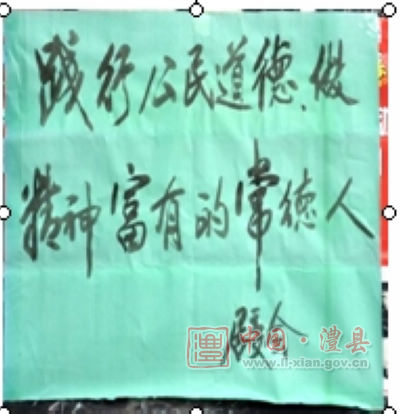 践行公民道德、做
精神富有的常德人
中国·澧县
www.li-xian.gov.cn